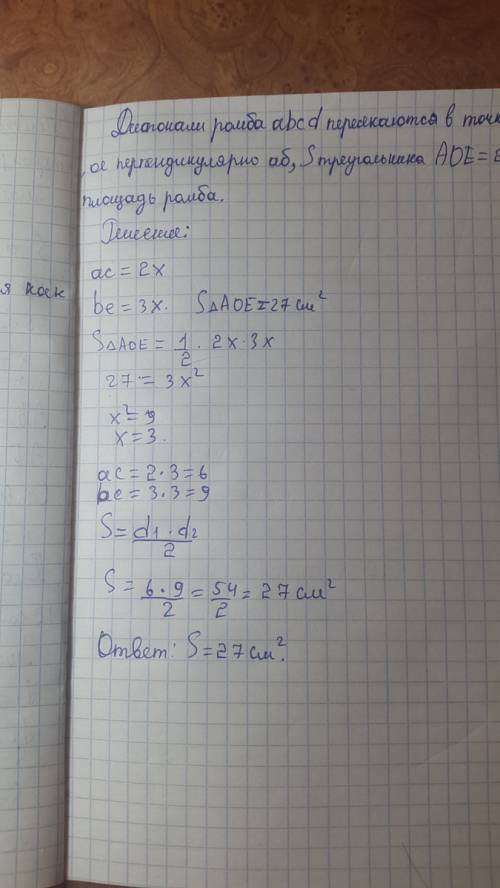 Диагонали ромба abcd пересекаются в точк
, ое перпендикулярно аб, S треугольника AOE =
площадь ромба.
Решение:
я
ac = 2x
be = 3x. S△AOE = 27 см²
S△AOE = 1/2 · 2x · 3x
27 = 3x²
x² = 9
x = 3.
ac = 2 · 3 = 6
be = 3 · 3 = 9
S = d1 · d2 / 2
S = 6 · 9 / 2 = 54 / 2 = 27 см²
Ответ: S = 27 см².